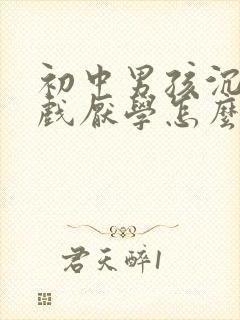 初中男孩沉
戲厭學怎麼
君天醉1